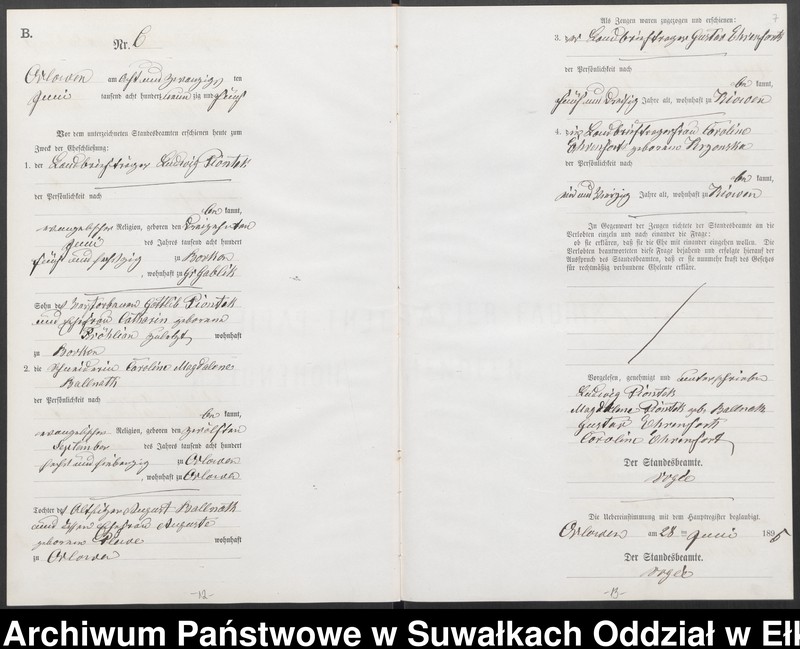 B.
Nr. 6
Orlowen am acht und zwanzigsten
Juni tausend acht hundert neunzig und fünf
Vor dem unterzeichneten Standesbeamten erschienen heute zum
Zweck der Eheschließung:
1. der Landbriefträger Ludwig Piontek
der Persönlichkeit nach
kannt,
evangelischer Religion, geboren den dreizehnten
Juni des Jahres tausend acht hundert
fünf und sechzig zu Borken
, wohnhaft zu Gr Gablik
Sohn des Gottlieb Piontek
und Ehefrau Catharin geborene
zuletzt wohnhaft
zu Borken
2. die Schneiderin Caroline Magdalene
Ballnath
der Persönlichkeit nach
kannt,
evangelischer Religion, geboren den zwölften
September des Jahres tausend acht hundert
sechs und siebenzig zu Orlowen
, wohnhaft zu Orlowen
Tochter des Altsitzer August Ballnath
und dessen Ehefrau Auguste
geborene wohnhaft
zu Orlowen
-12-
7
Als Zeugen waren zugezogen und erschienen:
3. der Landbriefträger Gustav Ehrenfort
der Persönlichkeit nach
kannt,
fünf und dreißig Jahre alt, wohnhaft zu Kiowen
4. die Landbriefträgerfrau Caroline
Ehrenfort geborene
der Persönlichkeit nach
kannt,
Jahre alt, wohnhaft zu Kiowen
In Gegenwart der Zeugen richtete der Standesbeamte an die
Verlobten einzeln und nach einander die Frage:
ob sie erklären, daß sie die Ehe mit einander eingehen wollen. Die
Verlobten beantworteten diese Frage bejahend und erfolgte hierauf der
Ausspruch des Standesbeamten, daß er sie nunmehr kraft des Gesetzes
für rechtmäßig verbundene Eheleute erkläre.
Vorgelesen, genehmigt und unterschrieben
Ludwig Piontek
Magdalene Piontek geb. Ballnath
Gustav Ehrenfort
Caroline Ehrenfort
Der Standesbeamte.
Vogée
Die Uebereinstimmung mit dem Hauptregister beglaubigt.
Orlowen am 28 ten Juni 1895
Der Standesbeamte.
Vogée
-13-
Archiwum Państwowe w Suwałkach Oddział w Ełk